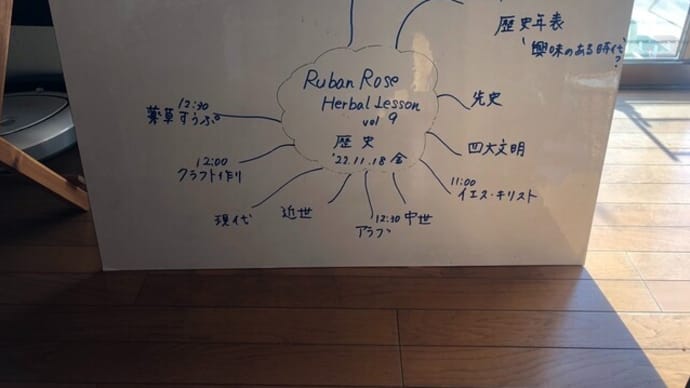 歴史年表
興味のある時代
?
Ruban Rose
Herbal Lesson
vol 9
歴史
'22.11.18 金
先史
四大文明
11:00
イエス・キリスト
中世
12:30
アラブ
近世
現代
12:00
クラフト作り
12:30
薬草すうぷ